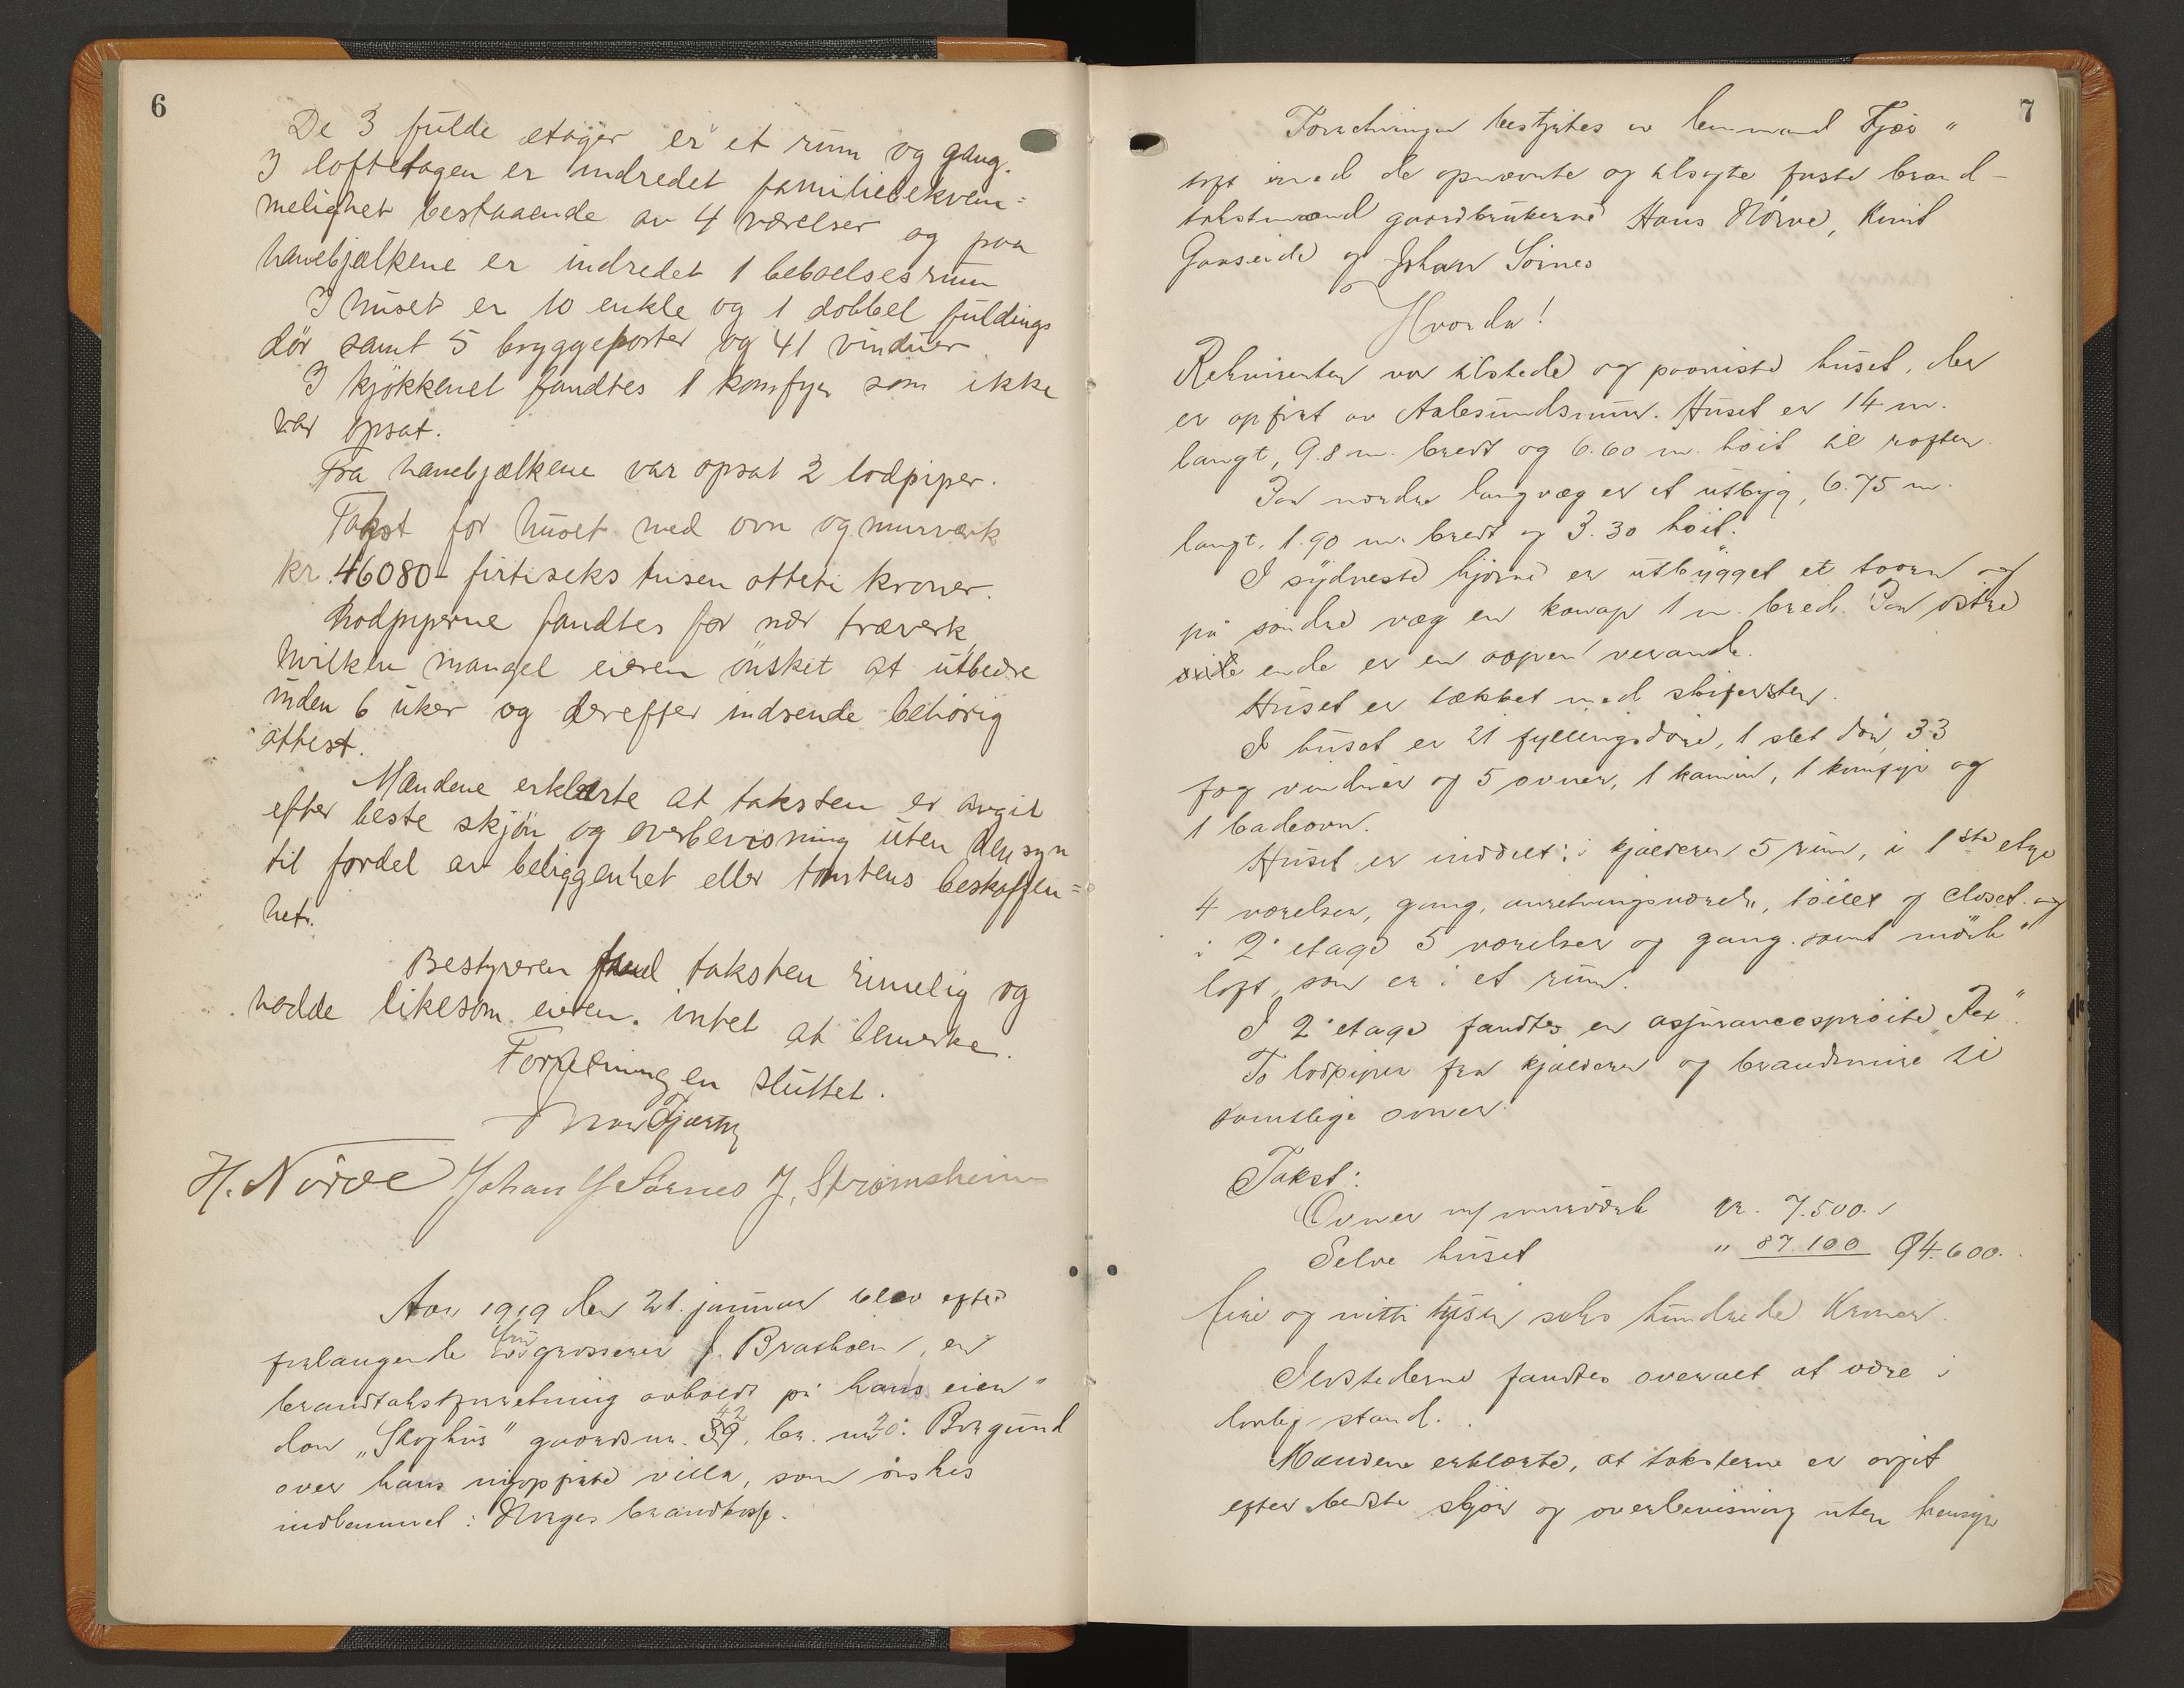 6
De 3 fulde etager er et rum og gang.
I loftetagen er indredet familiebekvem=
melighet bestaaende av 4 værelser og paa
hanebjælkene er indredet 1 beboelsesrum
I huset er 10 enkle og 1 dobbel fuldings
dör samt 5 bryggeporter og 41 vinduer
I kjökkenet fandtes 1 komfyr som ikke
var opsat.
Fra hanebjælkene var opsat 2 lodpiper.
Takst for huset med ovn og murværk
kr. 46080- firtiseks tusen otteti kroner.
Lodpiperne fandtes for nær træverk,
hvilken mangel eieren önsket at utbedre
inden 6 uker og derefter indsende behörig
attest.
Mændene erklærte at taksten er avgit
efter beste skjön og overbevisning uten hensyn
til fordel av beliggenhet eller tomtens beskaffen=
het.
Bestyreren fand taksten rimelig og
hadde likesom eieren intet at bemerke.
Forretningen sluttet.
H. Nörve Johan Sörnes J. Strömsheim
Aar 1919 den 21. januar blev efter
forlangende av grosserer J. Brasthoen, en
brandtakstforretning avholdt på hans eien"
dom „Skoghus" gaardsnr. 42 39, br. nr 20 i Borgund
over hans nyopförte villa, som önskes
indlemmet i Norges brandkasse.
7
Forretningen bestyrtes av lensmand Fjær"
toft med de opnævnte og tilsagte faste brand-
takstmænd gaardbrukerne Hans Nörve, Knut
Gaaseide og Johan Sörnes
Hvorda!
Rekvirenten var tilstede og paaviste huset, der
er opfört av Aalesundsmur. Huset er 14 m.
langt, 9.8 m. bredt og 6.60 m. höit til roften.
Paa nordre langvæg er et utbyg, 6.75 m.
langt, 1.90 m. bredt og 3.30 höit.
I sydvestre hjörne er utbygget et taarn og
på söndre væg en karnap 1 m. bred. Paa östre
side ende er en aapen veranda.
Huset er tækket med skifersten.
I huset er 21 fyllingsdöre, 1 slet dör, 33
fag vinduer og 5 ovner, 1 kamin, 1 komfyr og
1 badeovn.
Huset er inddelt: i kjælderen 5 rum, i 1ste etage
4 værelser, gang, anretningsværelse, toilet og closet og
i 2. etage 5 værelser og gang samt mörke"
loft, som er i et rum.
I 2. etage fandtes en assurancespröite „Rex".
To lodpiper fra kjælderen og brandmure til
samtlige ovner.
Takst:
Ovner m/ murværk kr. 7.500.
Selve huset " 87.100 94.600.
fire og nitti tusen seks hundrede kroner.
Ildstederne fandtes overalt at være i
lovlig stand.
Mændene erklærte, at taksterne er avgit
efter bedste skjön og overbevisning uten hensyn